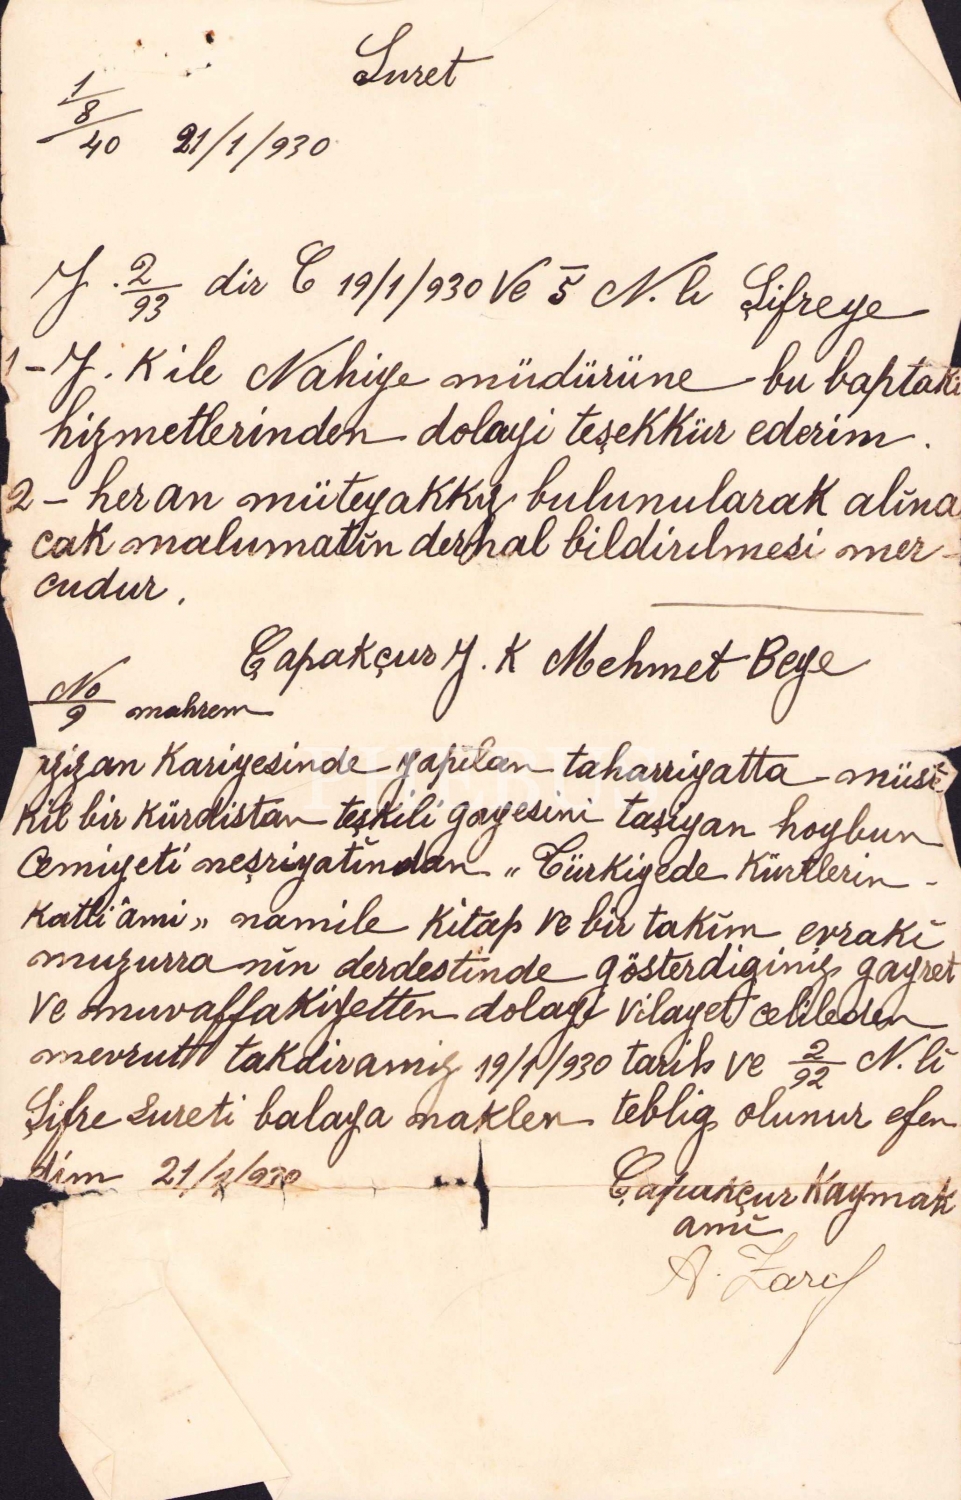 Suret
1
8
40 21/1/930
J. 2/93 dir C 19/1/930 Ve 5 N. lı Şifreye
1 - J. K ile Nahiye müdürüne bu baptaki
hizmetlerinden dolayi teşekkür ederim.
2 - her an müteyakkız bulunularak alîna
cak malumatîn derhal bildirılmesi mer-
cudur.
Çapakçur J. K Mehmet Beye
No
9 mahrem
kariyesinde yapîlan taharriyatta müsî
kil bir kürdistan teşkili gayesini taşiyan hoybun
Cemiyeti neşriyatîndan „ Türkiyede Kürtlerin -
Katli âmi „ namile kitap ve bir takîm evrakî
muzurra nîn derdestinde gösterdiginiz gayret
ve muvaffakiyetten dolayi vilayet celileden
mevrut takdiramiz 19/1/930 tarih ve 2/92 N. lî
Şifre Sureti balaya naklen teblig olunur efen
dim 21/1/930
Çapakçur Kaymak
amî
A.
PHEBUS